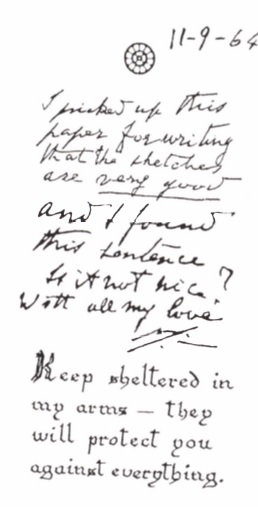 11-9-64
I picked up this
paper for writing
that the sketches
are very good
and I found
this sentence
Is it not nice?
With all my love
Keep sheltered in
my arms — they
will protect you
against everything.